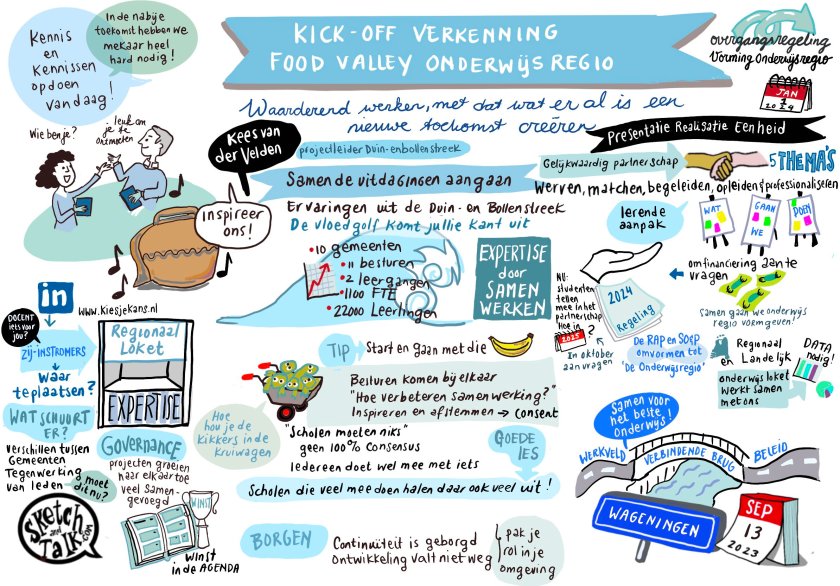 Kennis
en
Kennissen
opdoen
vandaag!
In de nabije
toekomst hebben we
mekaar heel
hard nodig!
KICK-OFF VERKENNING
FOOD VALLEY ONDERWIJSREGIO
overgangsregeling
Vorming Onderwijsregio
JAN
1
2024
Waarderend werken, met dat wat er al is een
nieuwe toekomst creëren
Wie ben je?
leuk om
je te
ontmoeten
Kees van
der Velden
projectleider Duin-enbollenstreek
inspireer
ons!
Samen de uitdagingen aangaan
Ervaringen uit de Duin- en Bollenstreek
De vloedgolf komt jullie kant uit
• 10 gemeenten
• 11 besturen
• 2 leergangen
• 1100 FTE
• 22000 Leerlingen
EXPERTISE
door
SAMEN
WERKEN
Presentatie Realisatie Eenheid
Gelijkwaardig partnerschap
5 THEMA'S
Werven, matchen, begeleiden, opleiden & professionaliseren
lerende
aanpak
WAT
GAAN
WE
DOEN
om financiering aan te
vragen
NU:
studenten
tellen
mee in het
partnerschap
Hoe in
2025
?
In oktober
aanvragen
2024
Regeling
Samen gaan we onderwijs
regio vormgeven!
De RAP en SOeP
omvormen tot
'De Onderwijsregio'
Regionaal
en Landelijk
DATA
nodig!
onderwijsloket
werkt samen
met ons
in
www.kiesjekans.nl
DOCENT
iets voor
jou?
zij-instromers
Waar
te plaatsen?
Regionaal
Loket
EXPERTISE
WAT SCHUURT
ER?
Verschillen tussen
Gemeenten
Tegenwerking
van leden
moet
dit nu?
GOVERNANCE
projecten groeien
naar elkaar toe
veel Samen-
gevoegd
WINST
WINST
in de AGENDA
Sketch
and
Talk
.com
TIP
Start en gaan met die
Besturen komen bij elkaar
"Hoe verbeteren samenwerking?"
Inspireren en afstemmen → consent
Hoe
hou je de
kikkers in de
kruiwagen
"Scholen moeten niks"
geen 100% consensus
Iedereen doet wel mee met iets
GOEDE
LES
Scholen die veel mee doen halen daar ook veel uit!
BORGEN
Continuïteit is geborgd
Ontwikkeling valt niet weg
pak je
rol in je
omgeving
Samen voor
het beste
Onderwijs!
WERKVELD
VERBINDENDE BRUG
BELEID
WAGENINGEN
SEP
13
2023